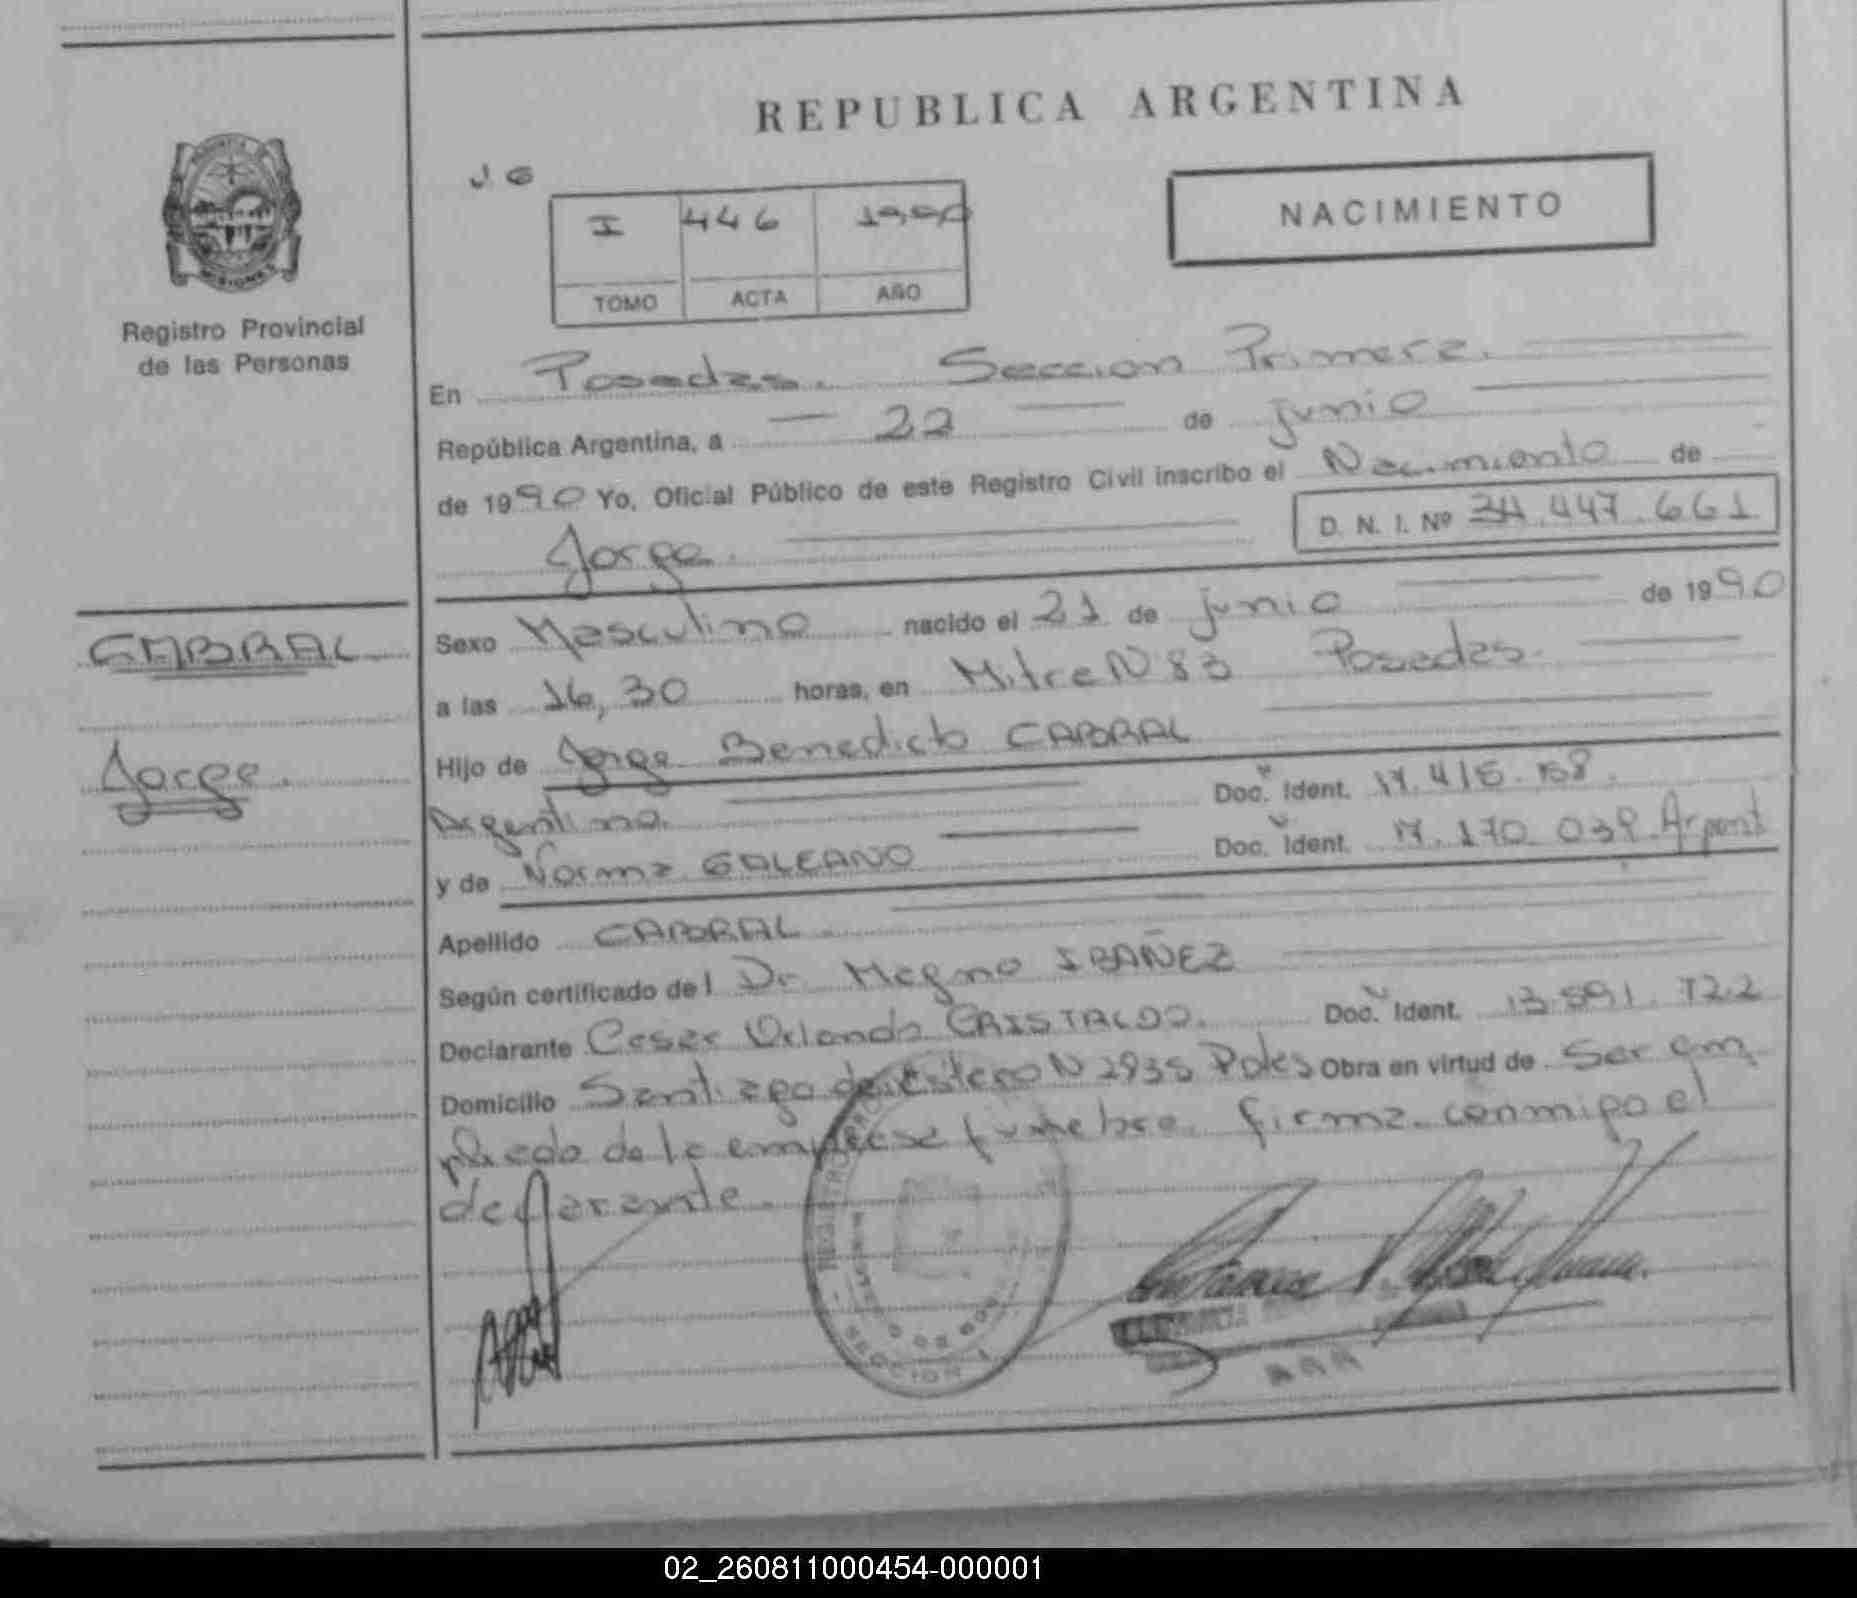 REPUBLICA ARGENTINA
J. G
I 446 1990
TOMO ACTA AÑO
NACIMIENTO
Registro Provincial
de las Personas
En Posadas. Seccion Primera.
República Argentina, a 22 de junio
de 1990 Yo, Oficial Público de este Registro Civil inscribo el Nacimiento de
Jorge. D. N. I. Nº 34.447.661
CABRAL
Jorge.
Sexo Masculino nacido el 21 de junio de 1990
a las 16,30 horas, en Mitre N 83 Posadas.
Hijo de Jorge Benedicto CABRAL
Argentino. Doc. Ident. 17.415.158.
y de Norma GALEANO Doc. Ident. 17.170.039 Argent
Apellido CABRAL
Según certificado del Dr Magno IBAÑEZ
Declarante Cesar Orlando CRISTALDO. Doc. Ident. 13.591.722
Domicilio Santiago de Estero N 2935 Pdas Obra en virtud de Ser em
pleado de la empresa funebre. firma conmigo el
declarante.
SECCION 1
02_260811000454-000001